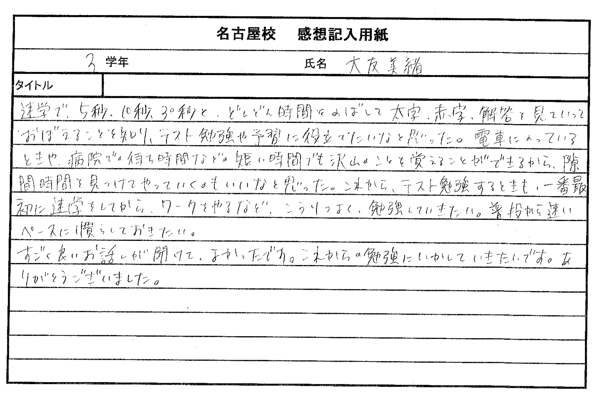 名古屋校 感想記入用紙
3 学年 氏名 大友美緒
タイトル
速学で、5秒、10秒、30秒と、どんどん時間をのばして太字、赤字、解答を見ていって
おぼえることを知り、テスト勉強や予習に役立てたいなと思った。電車にのっている
ときや、病院での待ち時間などの短い時間でも沢山のことを覚えることができるから、隙
間時間を見つけてやっていくのもいいなと思った。これから、テスト勉強するときも、一番最
初に速学をしてから、ワークをやるなど、こうりつよく、勉強していきたい。普段から速い
ペースに慣らしておきたい。
すごく良いお話しが聞けて、よかったです。これからの勉強にいかしていきたいです。あ
りがとうございました。